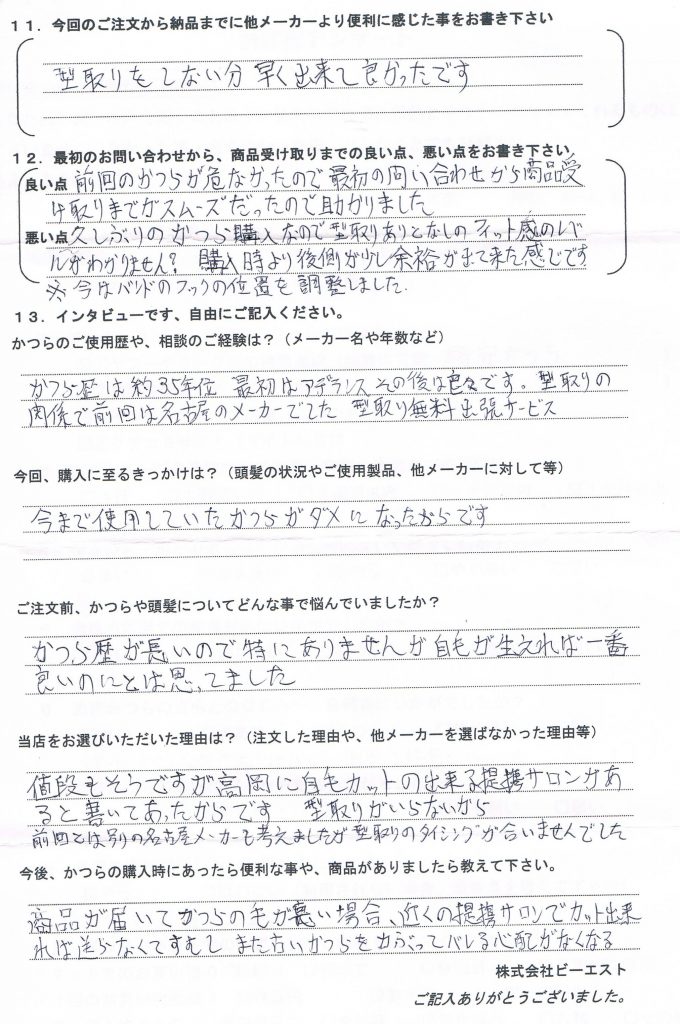 11．今回のご注文から納品までに他メーカーより便利に感じた事をお書き下さい
型取りをしない分 早く出来て良かったです
12．最初のお問い合わせから、商品受け取りまでの良い点、悪い点をお書き下さい
良い点 前回のかつらが危なかったので最初の問い合わせから商品受
け取りまでがスムーズだったので助かりました
悪い点 久しぶりのかつら購入なので型取りありとなしのフィット感のレベ
ルがわかりません？ 購入時より後側が少し余裕が出て来た感じです
※今はバンドのフックの位置を調整しました.
13．インタビューです、自由にご記入ください。
かつらのご使用歴や、相談のご経験は？（メーカー名や年数など）
かつら歴は約35年位 最初はアデランスその後は色々です。型取りの
関係で前回は名古屋のメーカーでした 型取り無料出張サービス
今回、購入に至るきっかけは？（頭髪の状況やご使用製品、他メーカーに対して等）
今まで使用していたかつらがダメになったからです
ご注文前、かつらや頭髪についてどんな事で悩んでいましたか？
かつら歴が長いので特にありませんが自毛が生えれば一番
良いのにとは思ってました
当店をお選びいただいた理由は？（注文した理由や、他メーカーを選ばなかった理由等）
値段もそうですが高岡に自毛カットの出来る提携サロンがあ
ると書いてあったからです 型取りがいらないから
前回とは別の名古屋メーカーも考えましたが型取りのタイミングが合いませんでした
今後、かつらの購入時にあったら便利な事や、商品がありましたら教えて下さい。
商品が届いてかつらの毛が長い場合、近くの提携サロンでカット出来
れば送らなくてすむし また古いかつらをかぶってバレる心配がなくなる
株式会社ビーエスト
ご記入ありがとうございました。